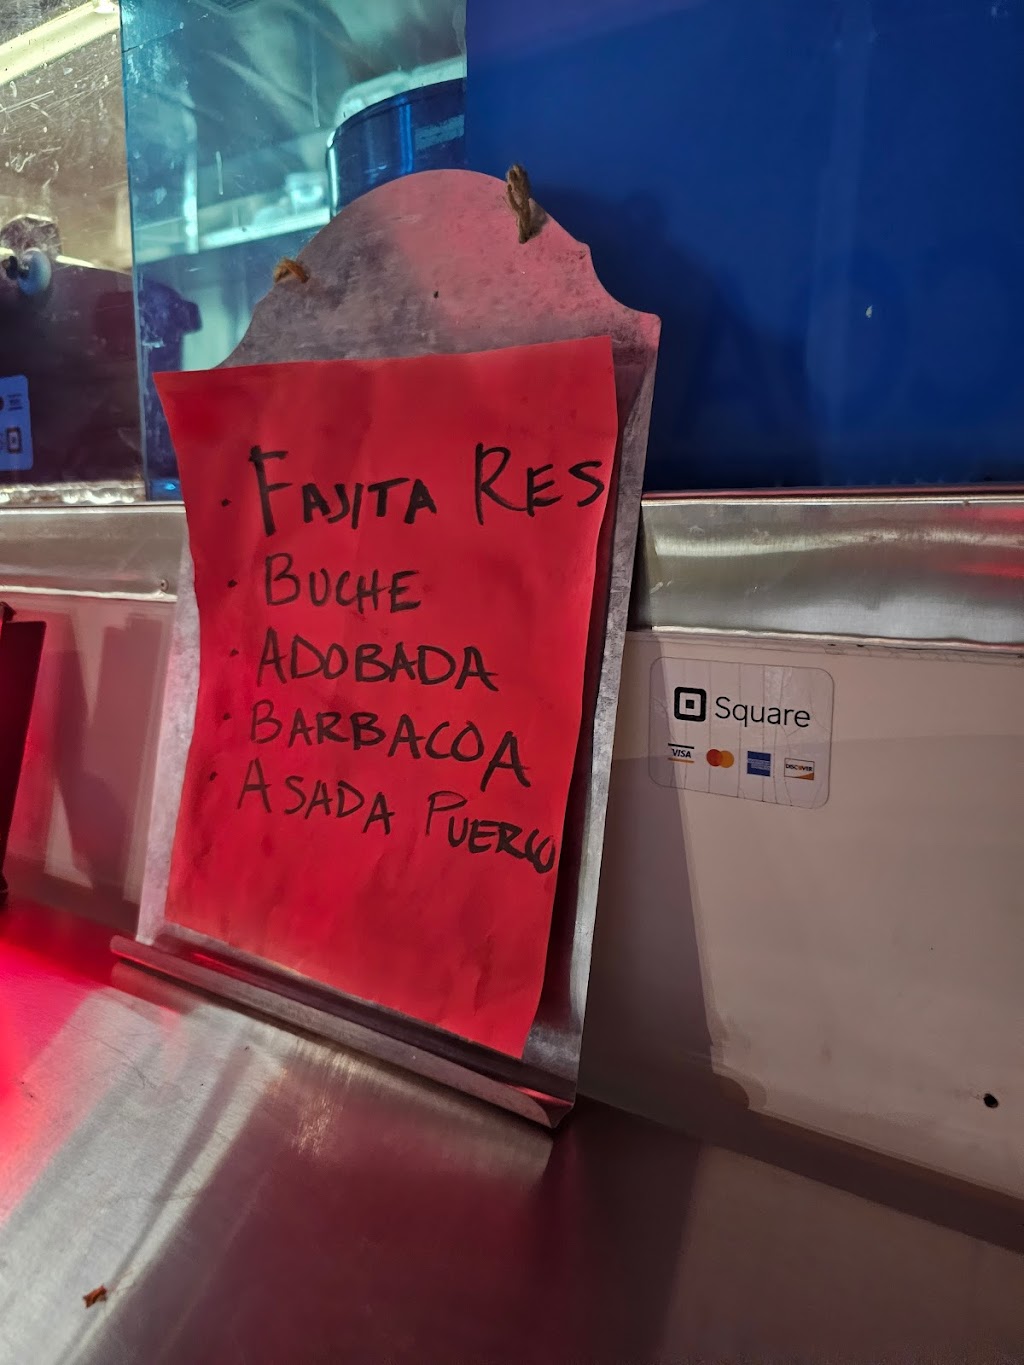 · FAJITA RES
· BUCHE
· ADOBADA
· BARBACOA
· ASADA PUERCO
Square
VISA
DISCOVER